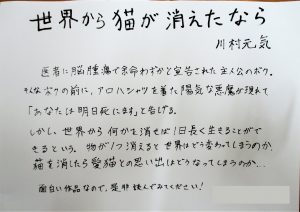 世界から猫が消えたなら
川村元気
医者に脳腫瘍で余命わずかと宣告された主人公のボク。
そんなボクの前に、アロハシャツを着た陽気な悪魔が現れて
「あなたは明日死にます」と告げる。
しかし、世界から何かを消せば1日長く生きることがで
きるという。物が1つ消えると世界はどう変わってしまうのか、
猫を消したら愛猫との思い出はどうなってしまうのか…
面白い作品なので、是非読んでみてください!